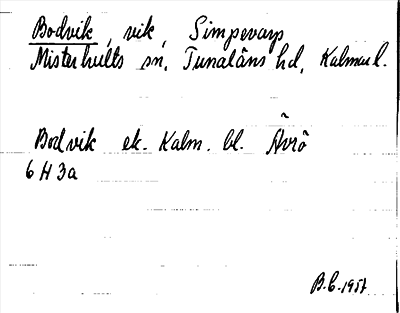 Bodvik, vik, Simpevarp
Misterhults sn, Tunaläns hd, Kalmar l.
Bodvik ek. Kalm. bl. Ävrö
6 H 3a
B.C. 1957